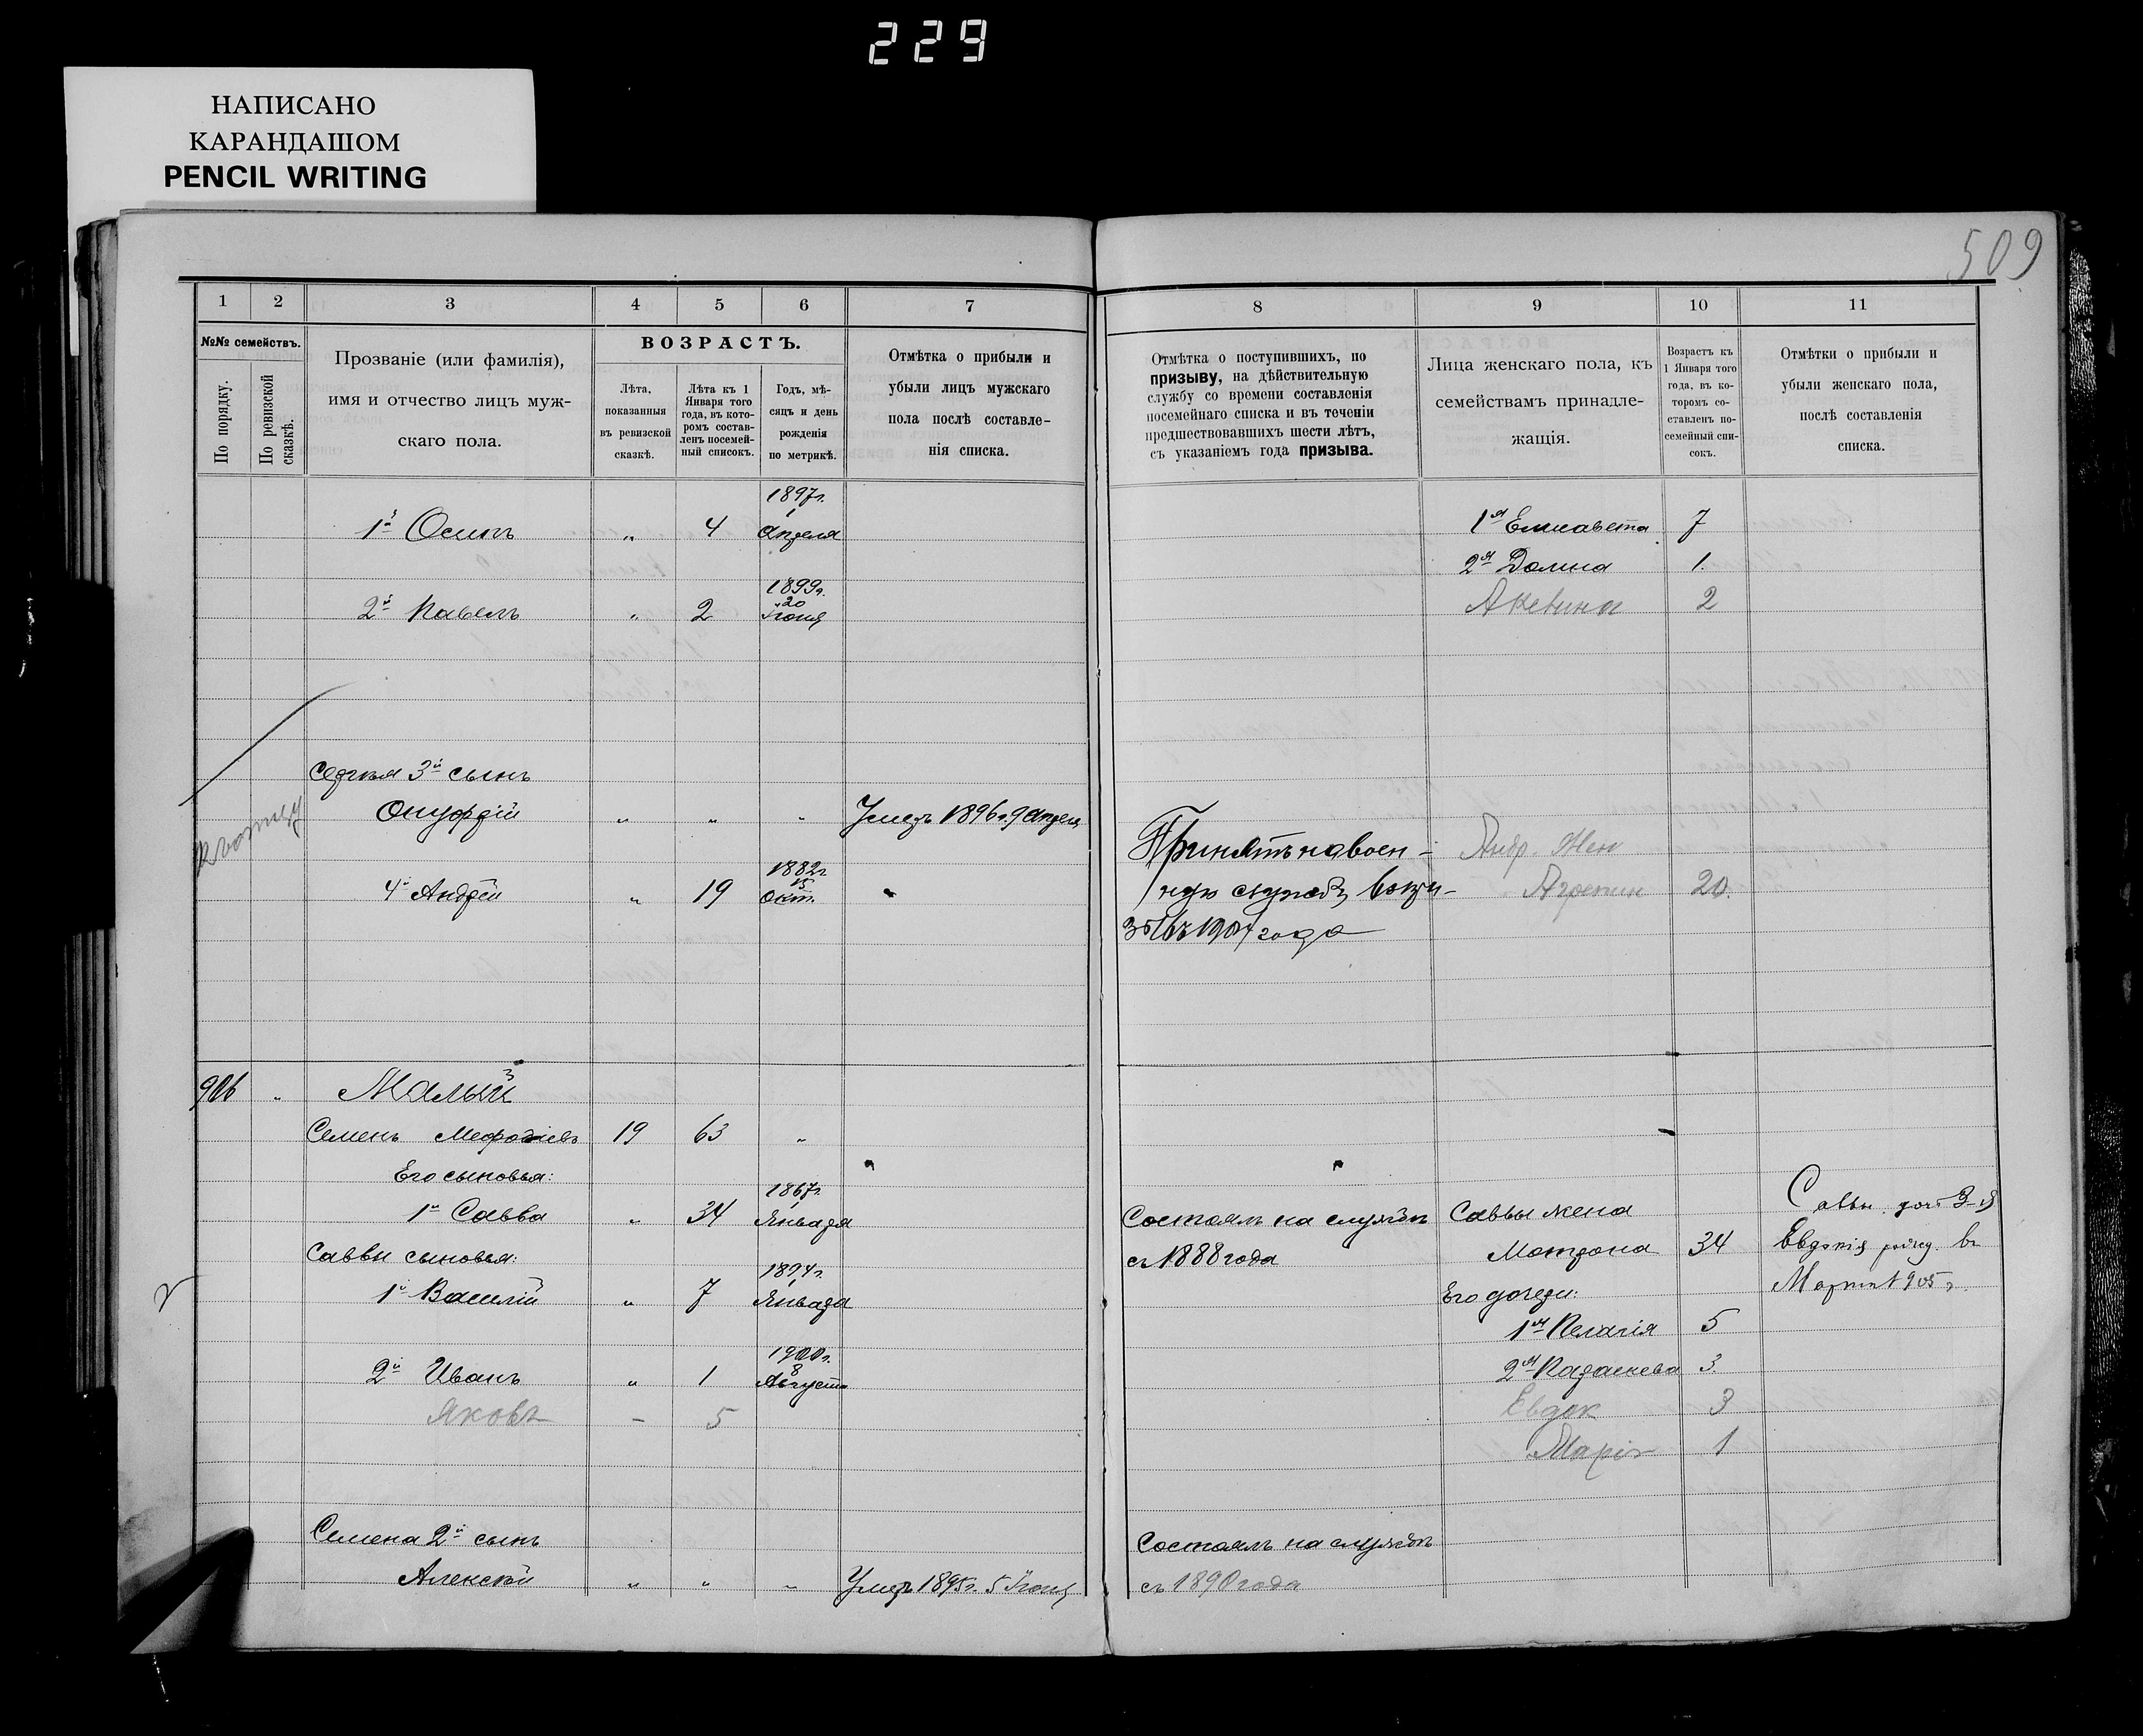 229
НАПИСАНО
КАРАНДАШОМ
PENCIL WRITING
509
1 2 3 4 5 6 7 8 9 10 11
№№ семействъ.
По порядку.
По ревизской сказкѣ.
Прозваніе (или фамилія),
имя и отчество лицъ муж-
скаго пола.
ВОЗРАСТЪ.
Лѣта,
показанныя
въ ревизской
сказкѣ.
Лѣта къ 1
Января того
года, въ кото-
ромъ состав-
ленъ посемей-
ный списокъ.
Годъ, мѣ-
сяцъ и день
рожденія
по метрикѣ.
Отмѣтка о прибыли и
убыли лицъ мужскаго
пола послѣ составле-
нія списка.
Отмѣтка о поступившихъ, по
призыву, на дѣйствительную
службу со времени составленія
посемейнаго списка и въ теченіи
предшествовавшихъ шести лѣтъ,
съ указаніемъ года призыва.
Лица женскаго пола, къ
семействамъ принадле-
жащія.
Возрастъ къ
1 Января того
года, въ ко-
торомъ со-
ставленъ по-
семейный спи-
сокъ.
Отмѣтки о прибыли и
убыли женскаго пола,
послѣ составленія
списка.
1897г.
1й Осипъ „ 4 1 Апреля
1я Елисавета 7
2я Домна 1.
1899г.
2й Павелъ „ 2 20 Іюня
2
Сергѣя 3й сынъ
Онуфрій „ „ „ Умеръ 1896г. 9 Апреля
1882г
4й Андрей „ 19 15 Окт.
Принятъ на воен-
ную службу въ при-
зывъ 1904 года
Андр. Жен
Агрепин 20.
906 „ Малый
Семенъ Мефодіевъ 19 63 „
Его сыновья:
1867г.
1й Савва „ 34 1 Января
Состоялъ на службѣ
съ 1888 года
Саввы жена
Матрона 34
Саввы доч 3-я
Евдокія рожд. въ
Марта 1905 г.
Саввы сыновья:
1894г.
1й Василій „ 7 1 Января
Его дочери:
1я Пелагія 5
1900г.
2й Иванъ „ 1 8 Августа
2я Параскева 3.
Яковъ – 5
Евдок 3
Марія 1
Семена 2й сынъ
Алексѣй „ „ „ Умеръ 1895г. 5 Іюня
Состоялъ на службѣ
съ 1890 года